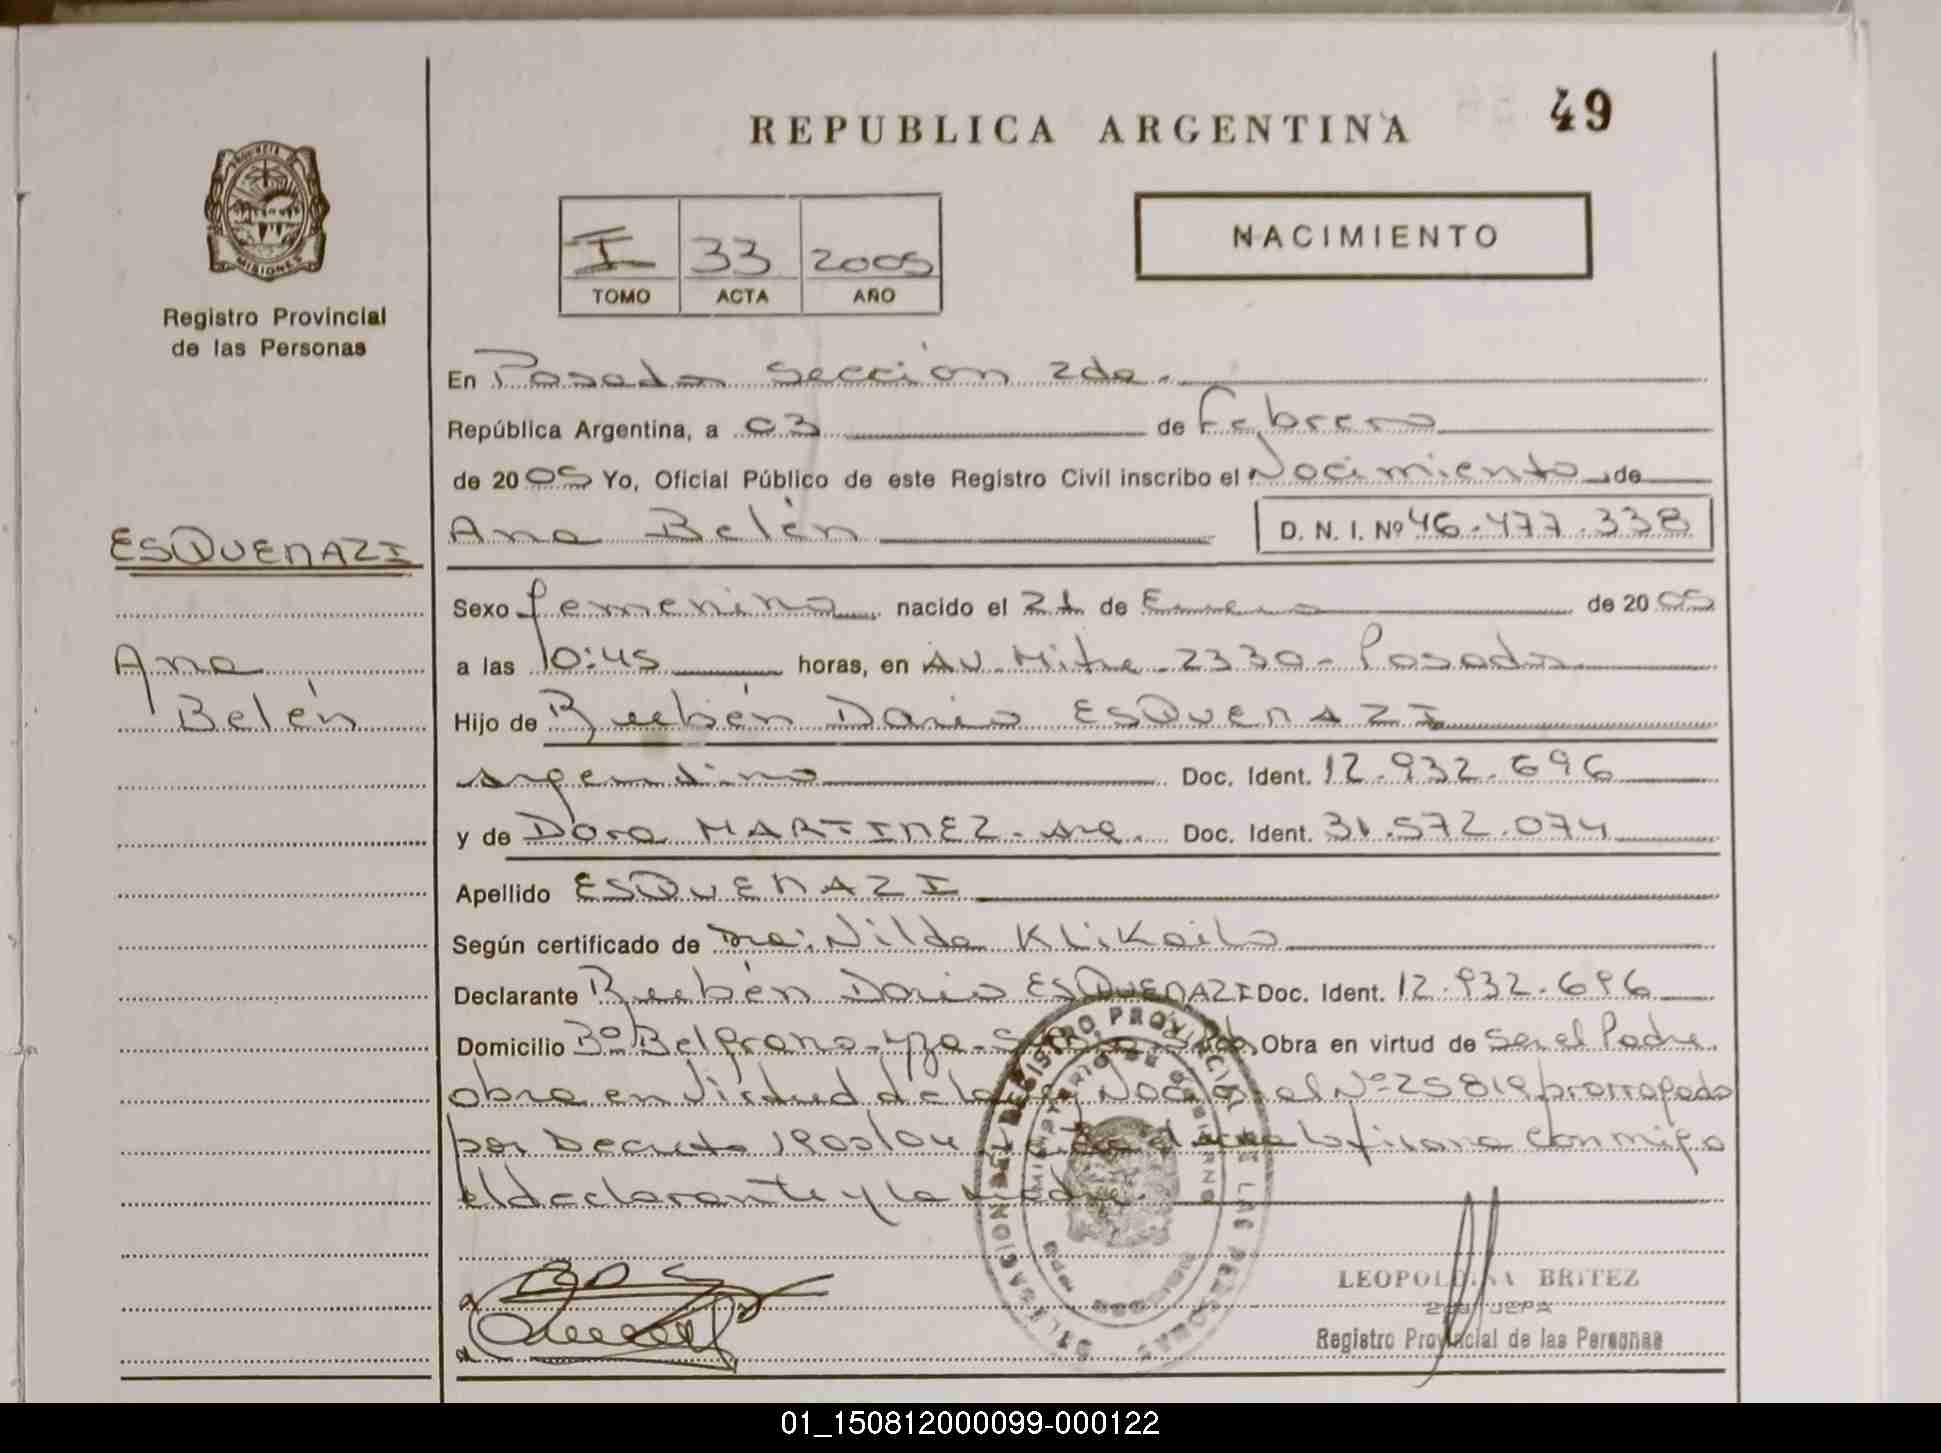 REPUBLICA ARGENTINA
49
PROVINCIA DE
MISIONES
Registro Provincial
de las Personas
I 33 2005
TOMO ACTA AÑO
NACIMIENTO
En Posadas Sección 2da.
República Argentina, a 03 de Febrero
de 2005 Yo, Oficial Público de este Registro Civil inscribo el Nacimiento de
ESQUENAZI
Ana Belén
D. N. I. Nº 46.477.338
Sexo femenino nacido el 21 de Enero de 2005
Ana
a las 10:45 horas, en Av. Mitre 2330 - Posadas
Belén
Hijo de Rubén Dario ESQUENAZI
argentino Doc. Ident. 12.932.696
y de Dora MARTINEZ - arg. Doc. Ident. 31.572.074
Apellido ESQUENAZI
Según certificado de Dra: Nilda Klikailo
Declarante Rubén Dario ESQUENAZI Doc. Ident. 12.932.696
Domicilio Bº Belgrano - Obra en virtud de Ser el Padre
obra en virtud de la Ley Nacional Nº 25819 prorrogada
por Decreto 1900/04 la firmana conmigo
el declarante y la madre.
REGISTRO PROVINCIAL DE LAS PERSONAS
MINISTERIO DE GOBIERNO
LEOPOLDINA BRITEZ
Registro Provincial de las Personas
01_150812000099-000122